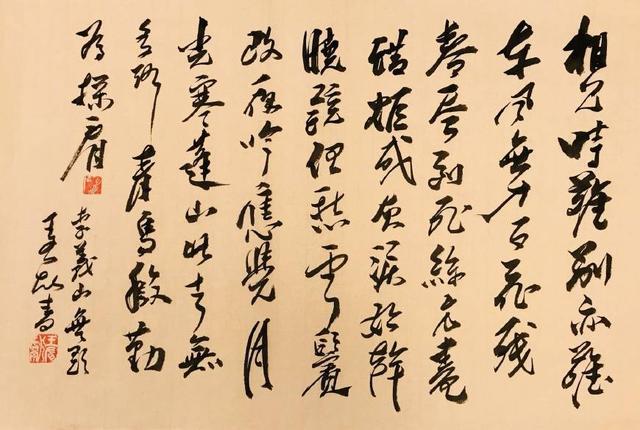 相見時難別亦難
東風無力百花殘
春蚕到死絲方盡
蜡炬成灰淚始乾
曉鏡但愁雲鬢
改夜吟應覺月
光寒蓬山此去無
多路青鳥殷勤
為探看
李義山無題
書